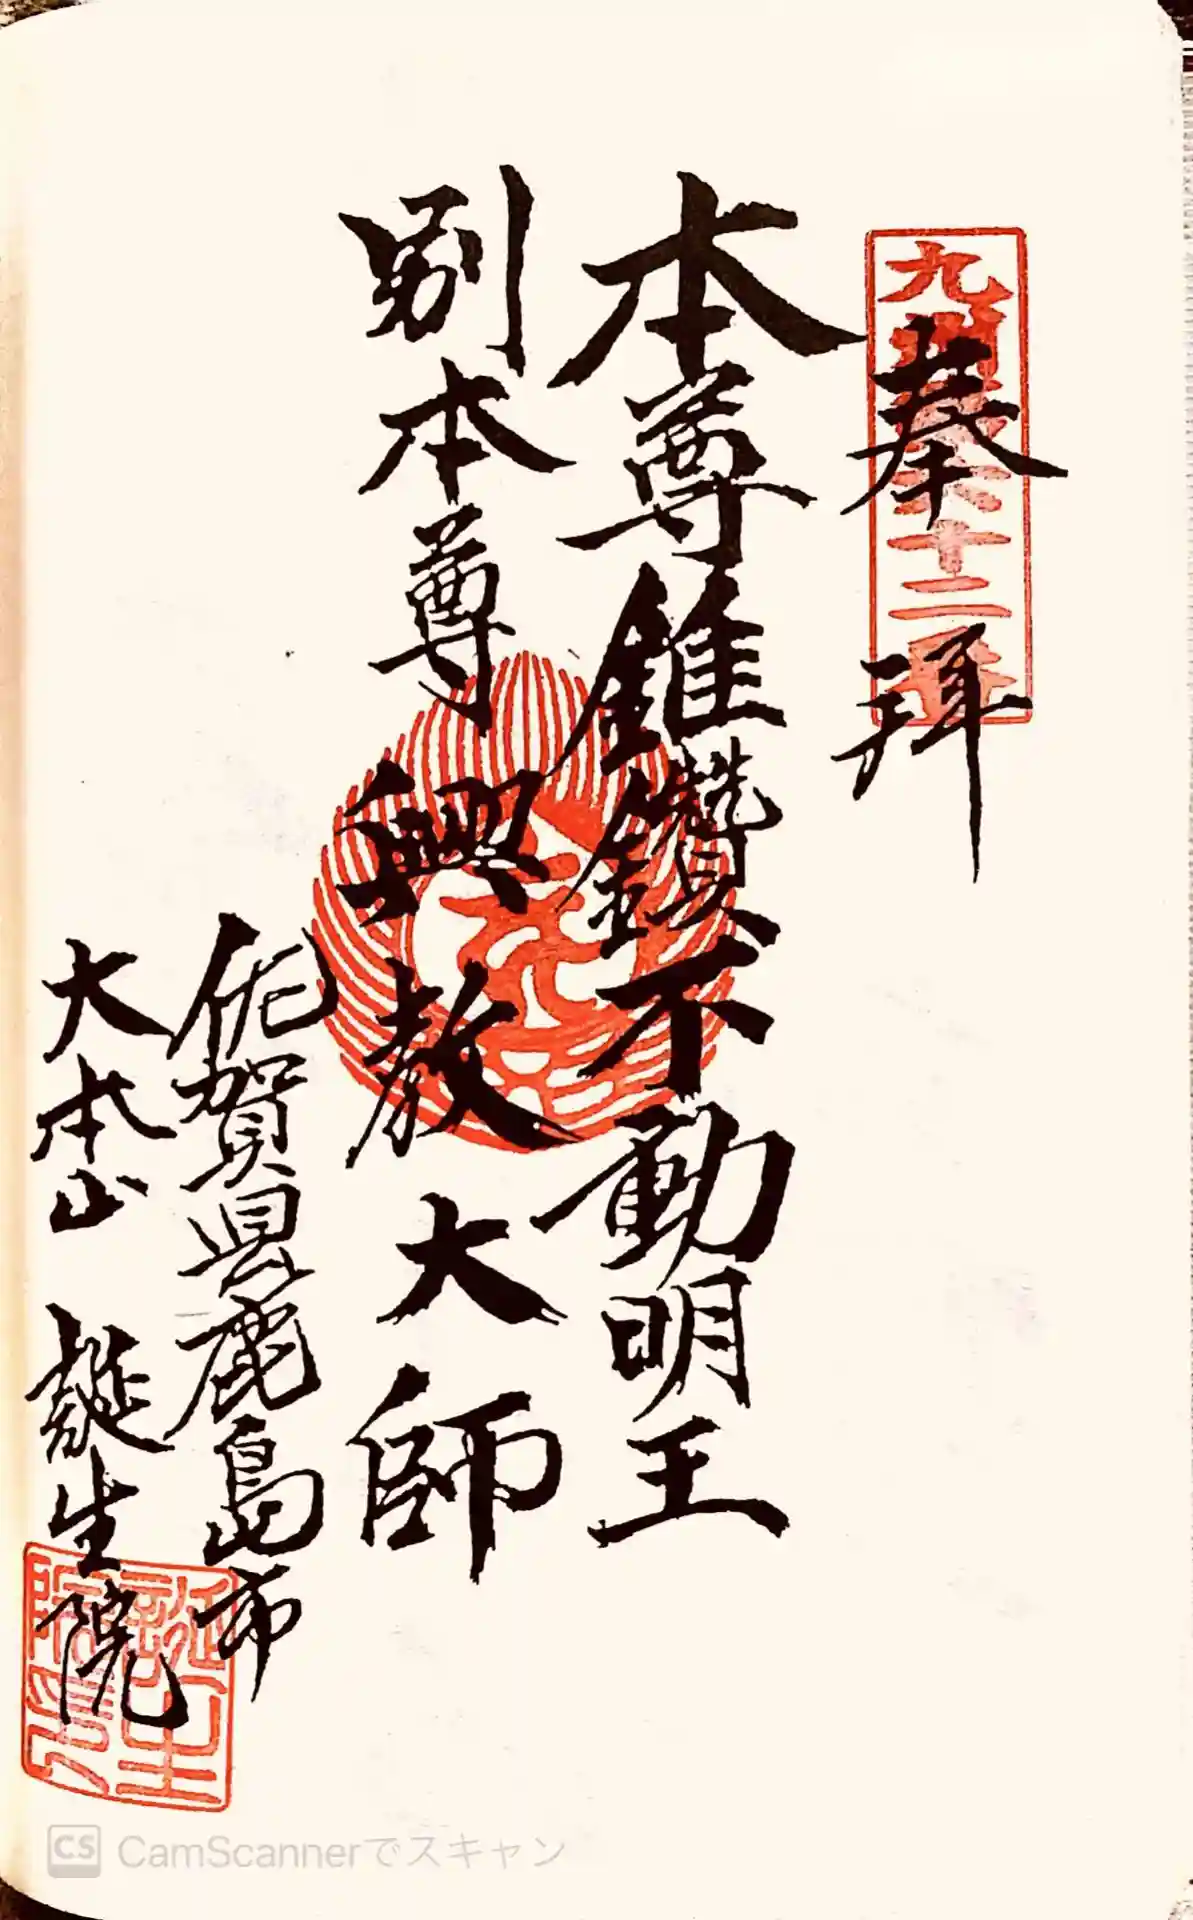 奉拝
九州第六十二番
本尊錐鑽不動明王
別本尊 興教大師
佐賀県鹿島市
大本山 誕生院
誕生院印
CS CamScannerでスキャン